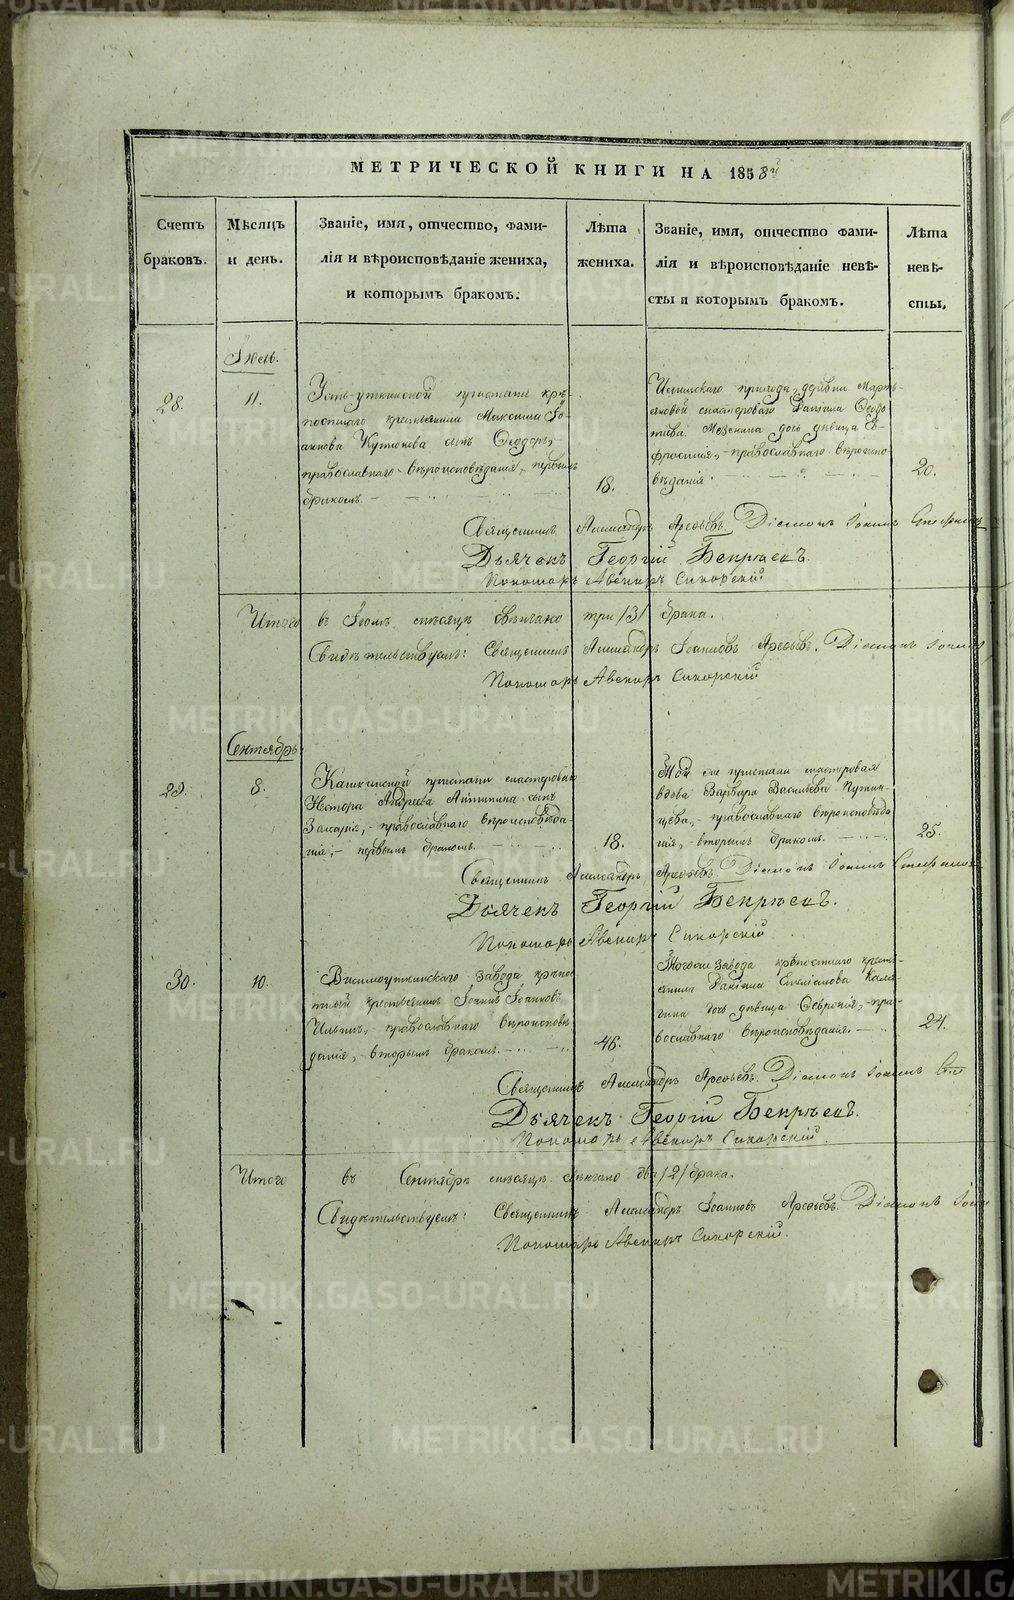 МЕТРИЧЕСКОЙ КНИГИ НА 1858й
Счетъ браковъ.
Мѣсяцъ и день.
Званіе, имя, отчество, фами-
лія и вѣроисповѣданіе жениха,
и которымъ бракомъ.
Лѣта жениха.
Званіе, имя, отчество фами-
лія и вѣроисповѣданіе невѣ-
сты и которымъ бракомъ.
Лѣта невѣ-
сты.
Іюль.
28.
11.
Усть-уткинской пристани крѣ-
постнаго крестьянина Максима Іо-
аннова Кутюкова сынъ Ѳеодоръ,-
православнаго вѣроисповѣданія, первымъ
бракомъ
18.
прихода, деревни Март-
Даніила Ѳедо-
това Мезенина дочь дѣвица Ев-
фросинія,- православнаго вѣроиспо-
вѣданія.
20.
Священникъ Александръ Арефьевъ. Діаконъ Іоаннъ
Дьячекъ Георгій Бекрѣевъ.
Пономарь Авениръ Сикорскій
Итого въ Іюлѣ мѣсяцѣ вѣнчано три /3/ брака.
Свидѣтельствуемъ: Священникъ Александръ Іоанновъ Арефьевъ. Діаконъ Іоаннъ
Пономарь Авениръ Сикорскій
Сентябрь
29.
8.
пристани мастероваго
Нестора Андреева сынъ
Захарія,- православнаго вѣроисповѣда-
нія,- первымъ бракомъ.
18.
Той же пристани мастеровая
вдова Варвара Васильева Путин-
цева,- православнаго вѣроисповѣда-
нія,- вторымъ бракомъ.
25.
Священникъ Александръ Арефьевъ. Діаконъ Іоаннъ
Дьячекъ Георгій Бекрѣевъ.
Пономарь Авениръ Сикорскій
30.
10.
Висимоуткинскаго завода крѣпо-
стный крестьянинъ Іоаннъ Іоанновъ
Ильинъ, православнаго вѣроисповѣ-
данія,- вторымъ бракомъ.
46.
Тогоже завода крѣпостнаго кресть-
янина Даніила Каля-
гина дочь дѣвица Ѳевронія,- пра-
вославнаго вѣроисповѣданія.
24.
Священникъ Александръ Арефьевъ. Діаконъ Іоаннъ
Дьячекъ Георгій Бекрѣевъ.
Пономарь Авениръ Сикорскій.
Итого въ Сентябрѣ мѣсяцѣ вѣнчано два /2/ брака.
Свидѣтельствуемъ: Священникъ Александръ Іоанновъ Арефьевъ. Діаконъ
Пономарь Авениръ Сикорскій.
METRIKI.GASO-URAL.RU